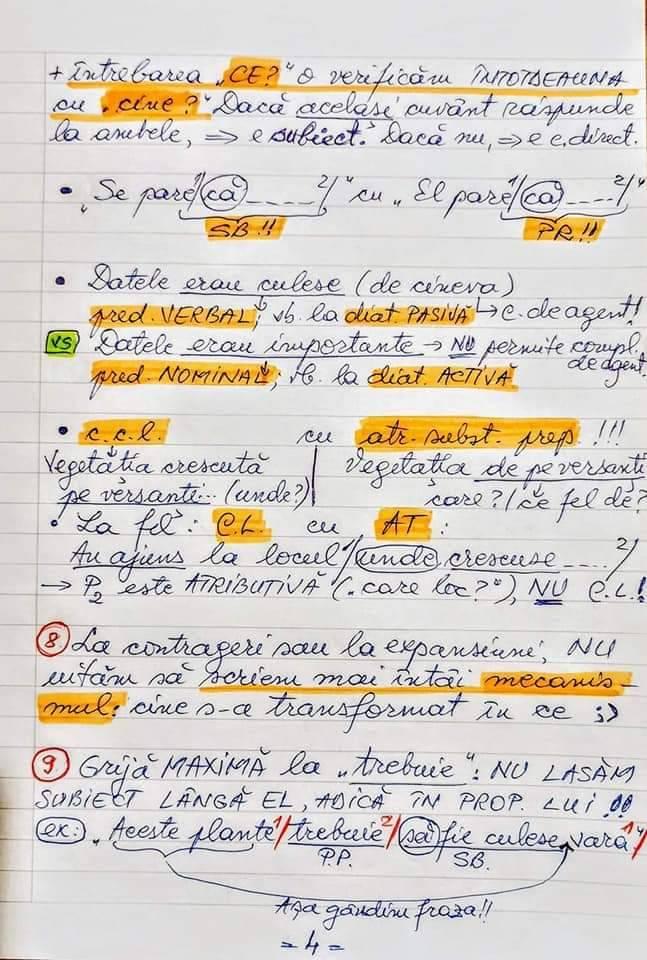 + întrebarea „CE?" o verificăm ÎNTOTDEAUNA
cu „cine?" Dacă același cuvânt răspunde
la ambele, ⇒ e subiect. Dacă nu, ⇒ e c. direct.
• „Se pare¹/că ....²/" cu „El pare¹/că ....²/"
SB!! PR!!
• Datele erau culese (de cineva)
pred. VERBAL; vb. la diat. PASIVĂ ↳ c. de agent!
VS Datele erau importante → NU permite compl.
de agent
pred. NOMINAL; vb. la diat. ACTIVĂ
• c.c.l. cu atr. subst. prep. !!!
Vegetația crescută Vegetația de pe versanți
pe versanți... (unde?) care?/ce fel de?
• La fel: C.L. cu AT:
Au ajuns la locul¹/unde crescuse ....²/
→ P₂ este ATRIBUTIVĂ („care loc?"), NU C.L.!
⑧ La contrageri sau la expansiune, NU
uităm să scriem mai întâi mecanis-
mul: cine s-a transformat în ce ;)
⑨ Grijă MAXIMĂ la „trebuie": NU LĂSĂM
SUBIECT LÂNGĂ EL, ADICĂ ÎN PROP. LUI!!
ex: „Aceste plante¹/trebuie²/să fie culese vara¹/"
P.P. SB.
Așa gândim fraza!!
= 4 =